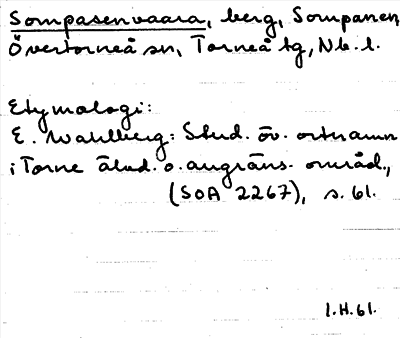 Sompasenvaara, berg, Sompanen,
Övertorneå sn, Torneå tg, Nb. l.
Etymologi:
E. Wahlberg: Stud. öv. ortnamn
i Torne älvd. o. angräns. områd.,
(SOA 2267), s. 61.
1.H.61.